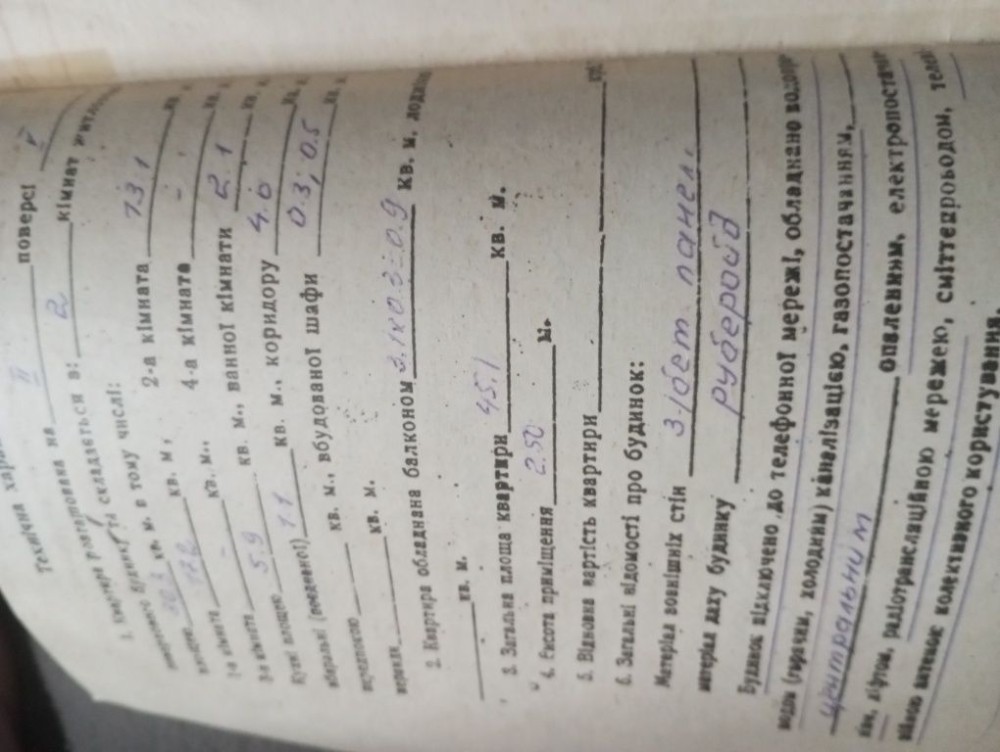 Технічна хара
1. Квартира розташована на II поверсі V
поверхового будинку та складається в: 2 кімнат
площею 30.3 кв. м. в тому числі:
1-а кімната 17.2 кв. м., 2-а кімната 13.1 кв.
3-я кімната - кв. м., 4-а кімната - кв.
Кухні площею 5.9 кв. м., ванної кімнати 2.1 кв.
вбиральні (поєднаної) 1.1 кв. м., коридору 4.0 кв.
кв. м., вбудованої шафи 0.3; 0.5 кв.
кв. м.
2. Квартира обладнана балконом 3.1х0.3=0.9 кв. м. лоджією
кв. м.
3. Загальна площа квартири 45.1 кв. м.
4. Висота приміщення 2.50 м.
5. Відновна вартість квартири
6. Загальні відомості про будинок:
Матеріал зовнішніх стін З-/бет панел.
матеріал даху будинку рубероїд
Будинок підключено до телефонної мережі, обладнано водопро
водом (гарячим, холодним) каналізацією, газопостачанням,
центральним опаленням, електропостачан
ням, ліфтом, радіотрансляційною мережею, сміттєпроводом, телеві
зійною антеною колективного користування.